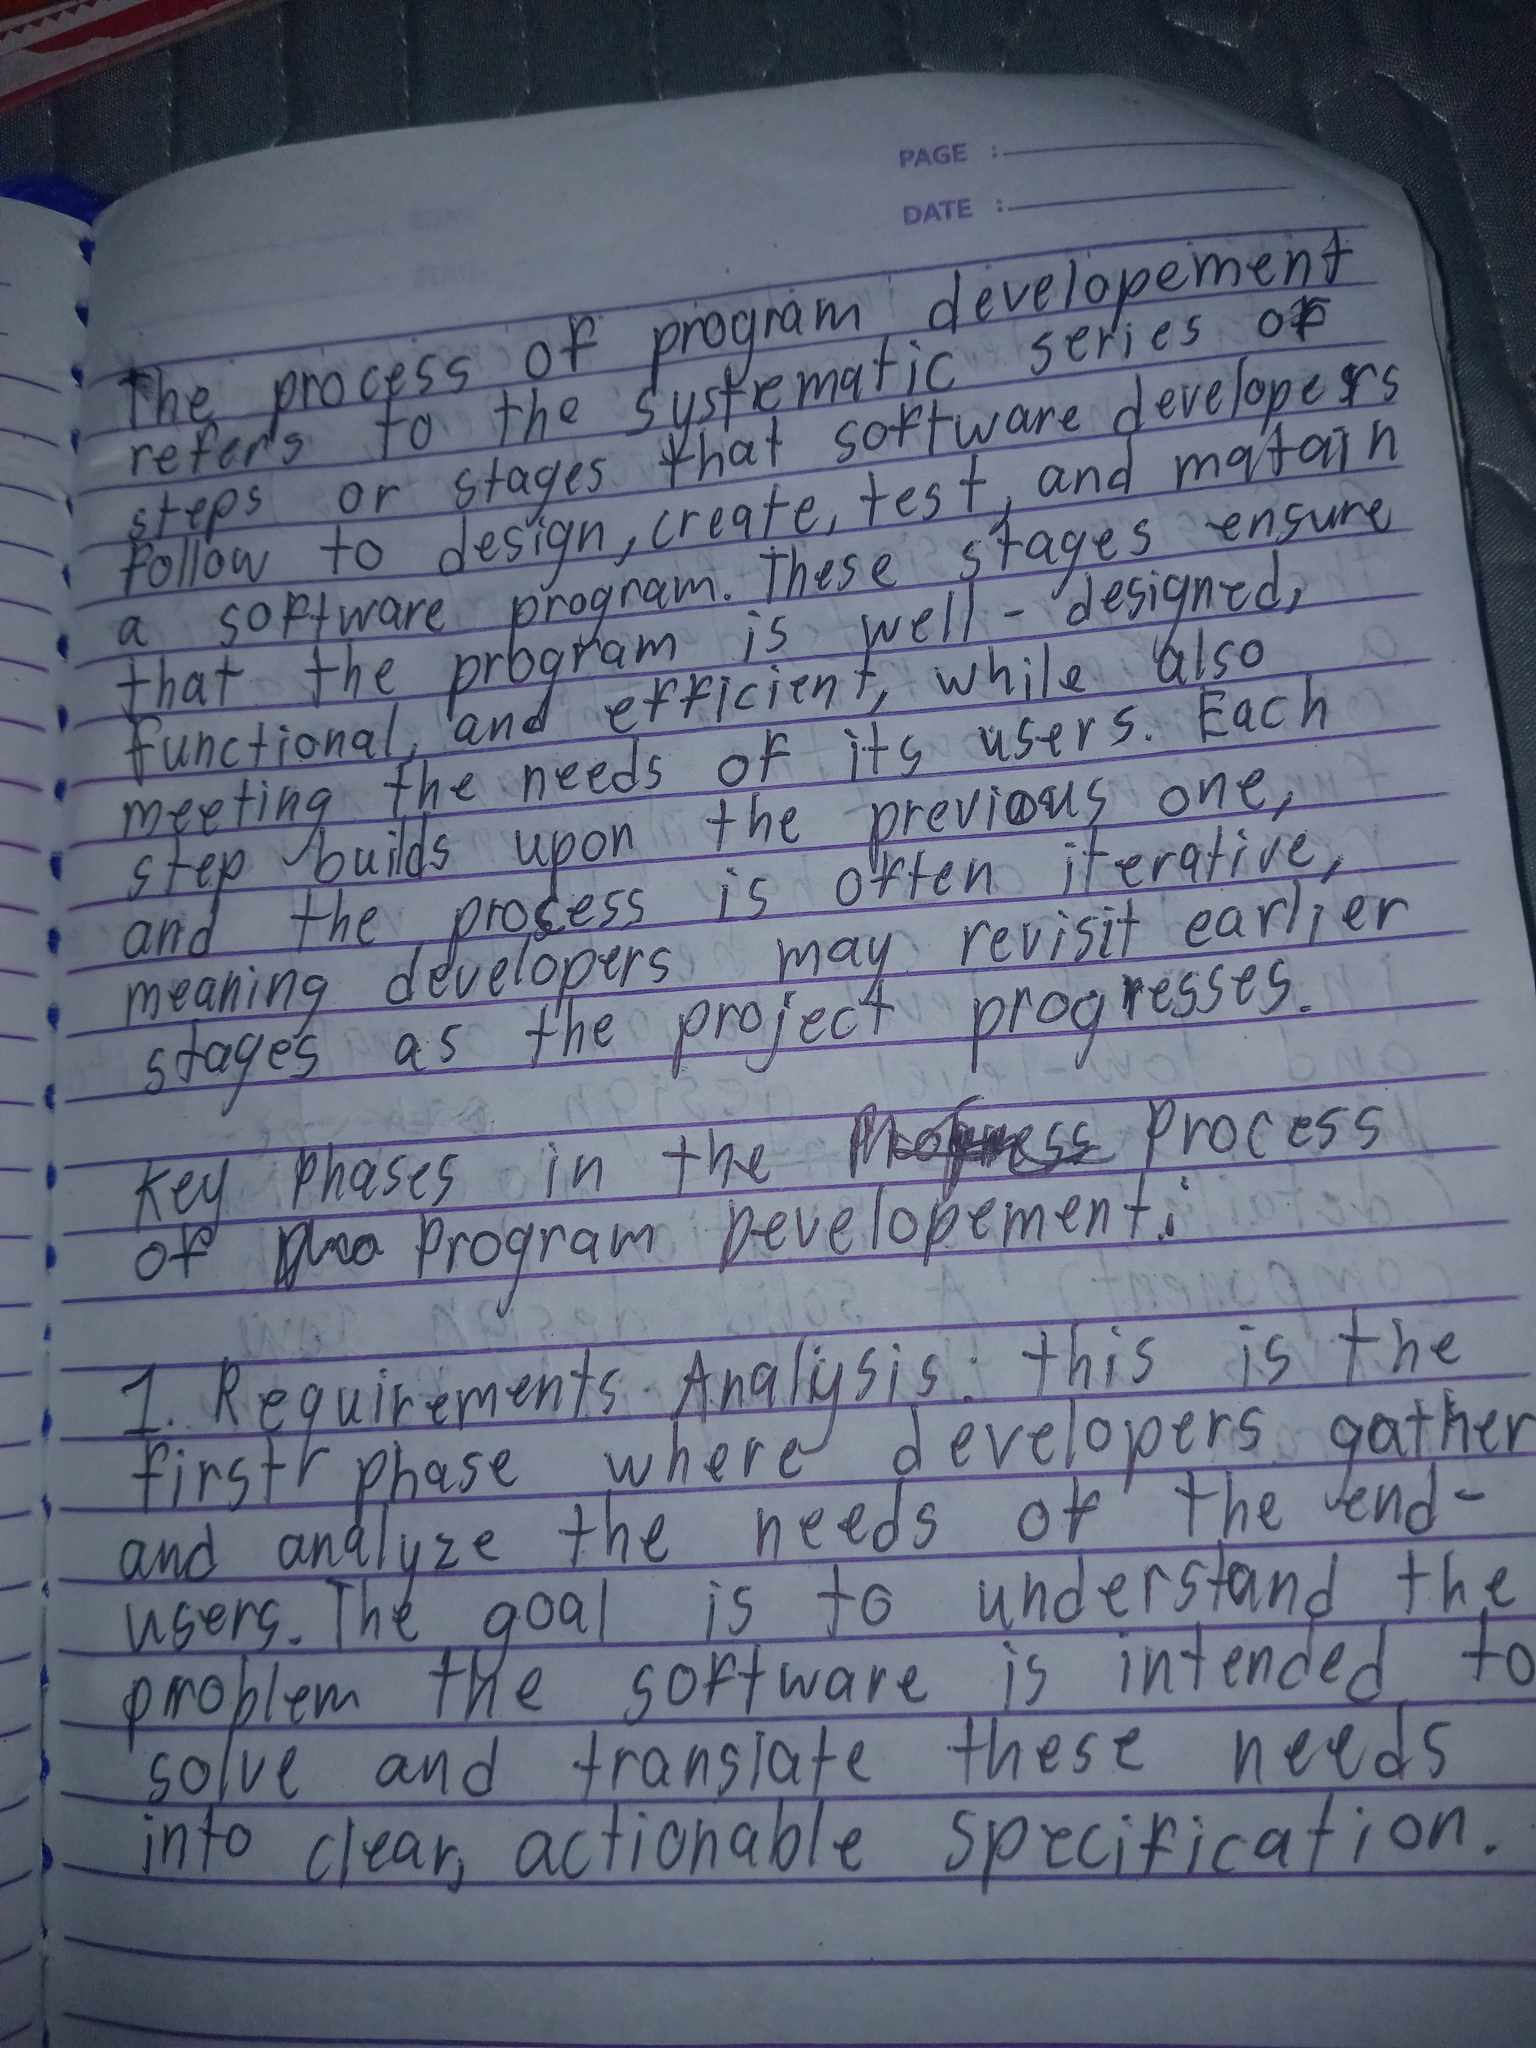 PAGE :
DATE :
The process of program developement
refers to the systematic series of
steps or stages that software developers
follow to design, create, test, and matain
a software program. These stages ensure
that the program is well - designed,
functional, and efficient, while also
meeting the needs of its users. Each
step builds upon the previous one,
and the process is often iterative,
meaning developers may revisit earlier
stages as the project progresses.
Key Phases in the Process
of Program Developement:
1. Requirements Analysis: this is the
first phase where developers gather
and analyze the needs of the end-
users. The goal is to understand the
problem the software is intended to
solve and translate these needs
into clear, actionable specification.